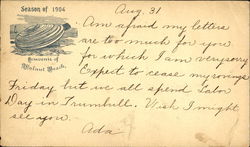 Season of 1904
Souvenir of
Walnut Beach.
Aug. 31
Am afraid my letters
are too much for you
for which I am very sorry
Expect to cease my rovings
Friday but we all spend Labor
Day in Trumbull. Wish I might
see you.
Ada